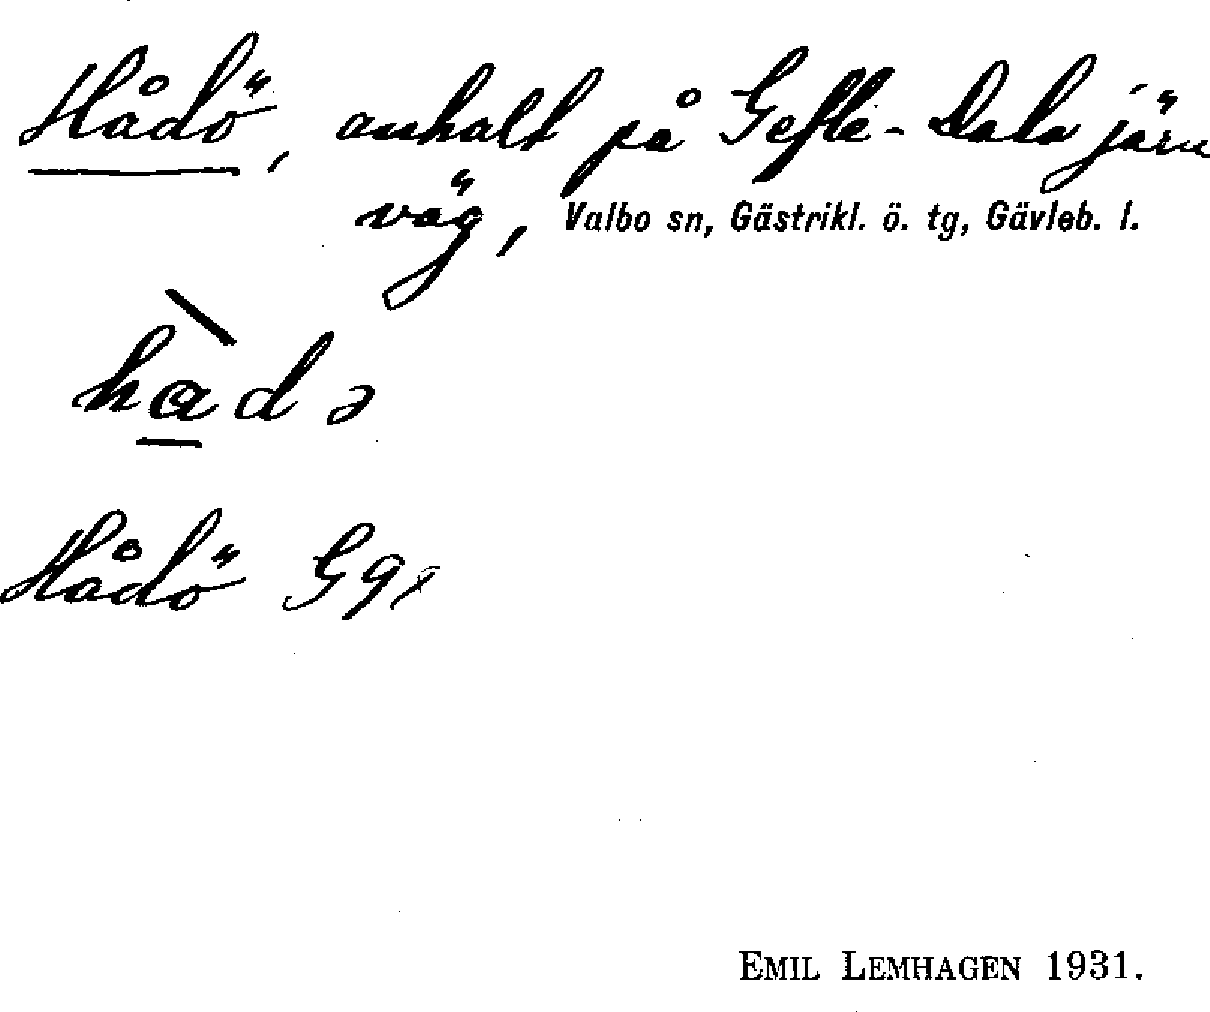 Hådö, anhalt på Gefle-Dala järn
väg, Valbo sn, Gästrikl. ö. tg, Gävleb. l.
hàdə
Hådö Ggx
EMIL LEMHAGEN 1931.